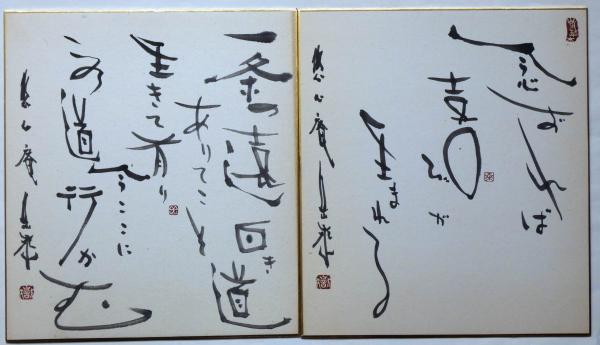 念ずれば
喜びが
生まれる
一条の遠回き道
ありてこそ
生きて有り
今ここに
この道行かむ